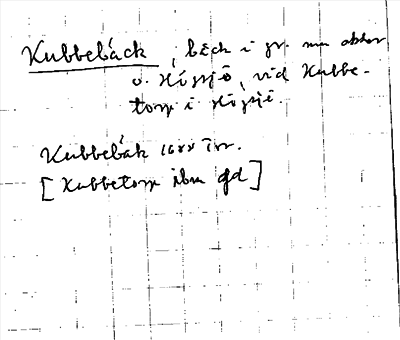 Kubbebäck, bäck i gr. mn
o. Högsjö, vid Kubbe-
torp i Högsjö.
Kubbebäk
[Kubbetorp ibm gd]